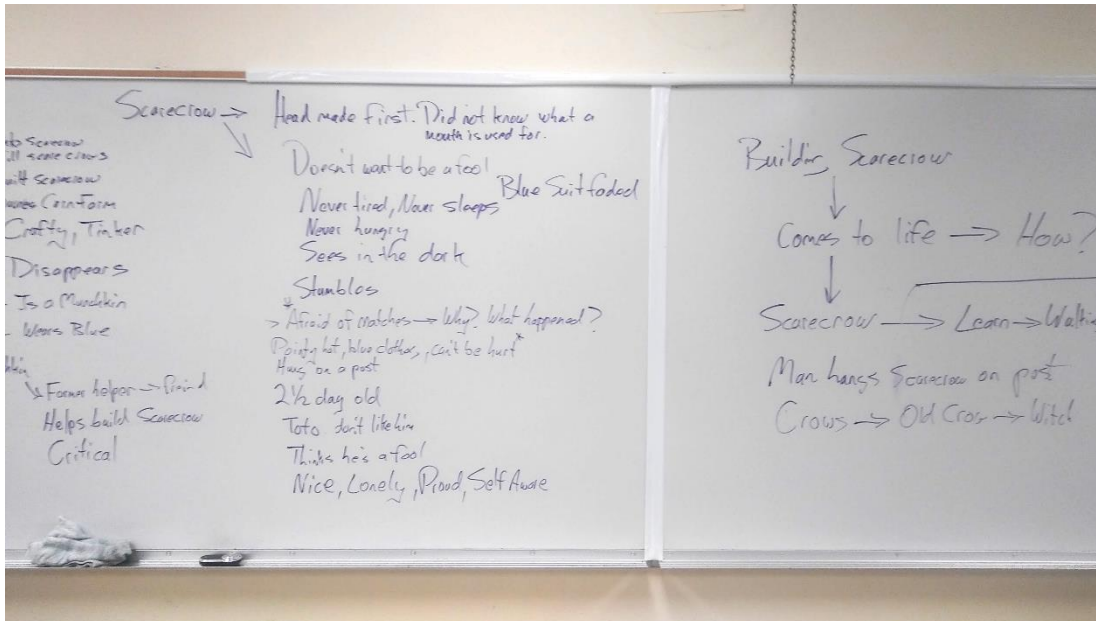 to Scarecrow
ill scare crows
uilt Scarecrow
Corn Farm
Crafty, Tinker
Disappears
- Is a Munchkin
- Wears Blue
↘ Farmer helper →
Helps build Scarecrow
Critical
Scarecrow → Head made first. Did not know what a
mouth is used for.
Doesn't want to be a fool
Blue Suit faded
Never tired, Never sleeps
Never hungry
Sees in the dark
Stumbles
> *Afraid of matches → Why? What happened?
Pointy hat, blue clothes, can't be hurt*
Hung on a post
2 1/2 day old
Toto don't like him
Thinks he's a fool
Nice, Lonely, Proud, Self Aware
Building Scarecrow
↓
Comes to life → How?
↓
Scarecrow → Learn → Walkin
Man hangs Scarecrow on post
Crows → Old Crow → Witch